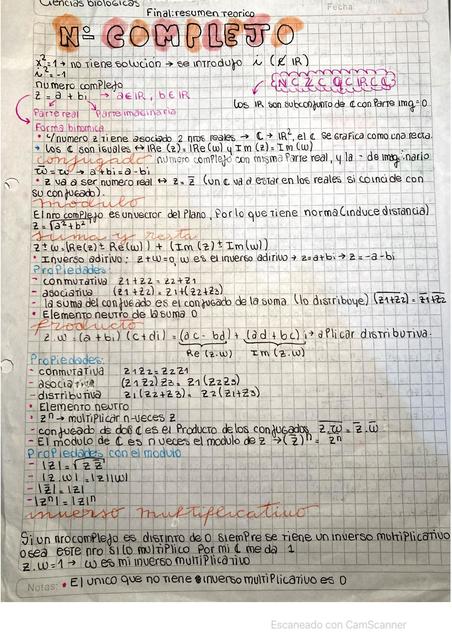 Ciencias biologicas
Final: resumen teorico
Fecha
Nº COMPLEJO
x²=-1 → no tiene solución → se introdujo i (∉ IR)
i²=-1
numero complejo
z = a + bi → a∈IR, b∈IR
N⊂Z⊂Q⊂IR⊂C
Parte real
Parte imaginaria
los IR son subconjunto de C con Parte img=0
Forma binomica
• c/numero z tiene asociado 2 nros reales → C → IR², el C se grafica como una recta.
→ los C son iguales ↔ Re(z)=Re(w) y Im(z)=Im(w)
conjugado numero complejo con misma Parte real, y la - de imaginario
w̅=w → a+bi=a-bi
• z va a ser numero real ↔ z=z̅ (un C va a estar en los reales si coincide con
su conjugado).
modulo
El nro complejo es un vector del Plano, Por lo que tiene norma (induce distancia)
z=√a²+b²
suma y resta
z±w=(Re(z)±Re(w)) + (Im(z)±Im(w))
• Inverso aditivo: z+w=0, w es el inverso aditivo → z=a+bi → z=-a-bi
Propiedades:
- conmutativa z1+z2=z2+z1
- asociativa (z1+z2)=z1+(z2+z3)
- la suma del conjugado es el conjugado de la suma (lo distribuye) (z1+z2)=z1+z2
• Elemento neutro de la suma 0
Producto
z.w=(a+bi)(c+di)=(ac-bd)+(ad+bc)i → aplicar distributiva.
Re(z.w) Im(z.w)
Propiedades:
- conmutativa z1z2=z2z1
- asociativa (z1z2)z3=z1(z2z3)
- distributiva z1(z2+z3)=z2(z1+z3)
• Elemento neutro
• zⁿ → multiplicar n-veces z
- conjugado de dos C es el Producto de los conjugados z.w=z̅.w̅
- El modulo de C es n veces el modulo de z → (z̅)ⁿ=zⁿ
Propiedades con el modulo
- |z|=√z z̅
- |z.w|=|z||w|
- |z̅|=|z|
- |zⁿ|=|z|ⁿ
inverso multiplicativo
Si un nro complejo es distinto de 0 siempre se tiene un inverso multiplicativo
o sea este nro si lo multiplico Por mi C me da 1
z.w=1 → w es mi inverso multiplicativo
Notas: • El unico que no tiene inverso multiplicativo es 0
Escaneado con CamScanner